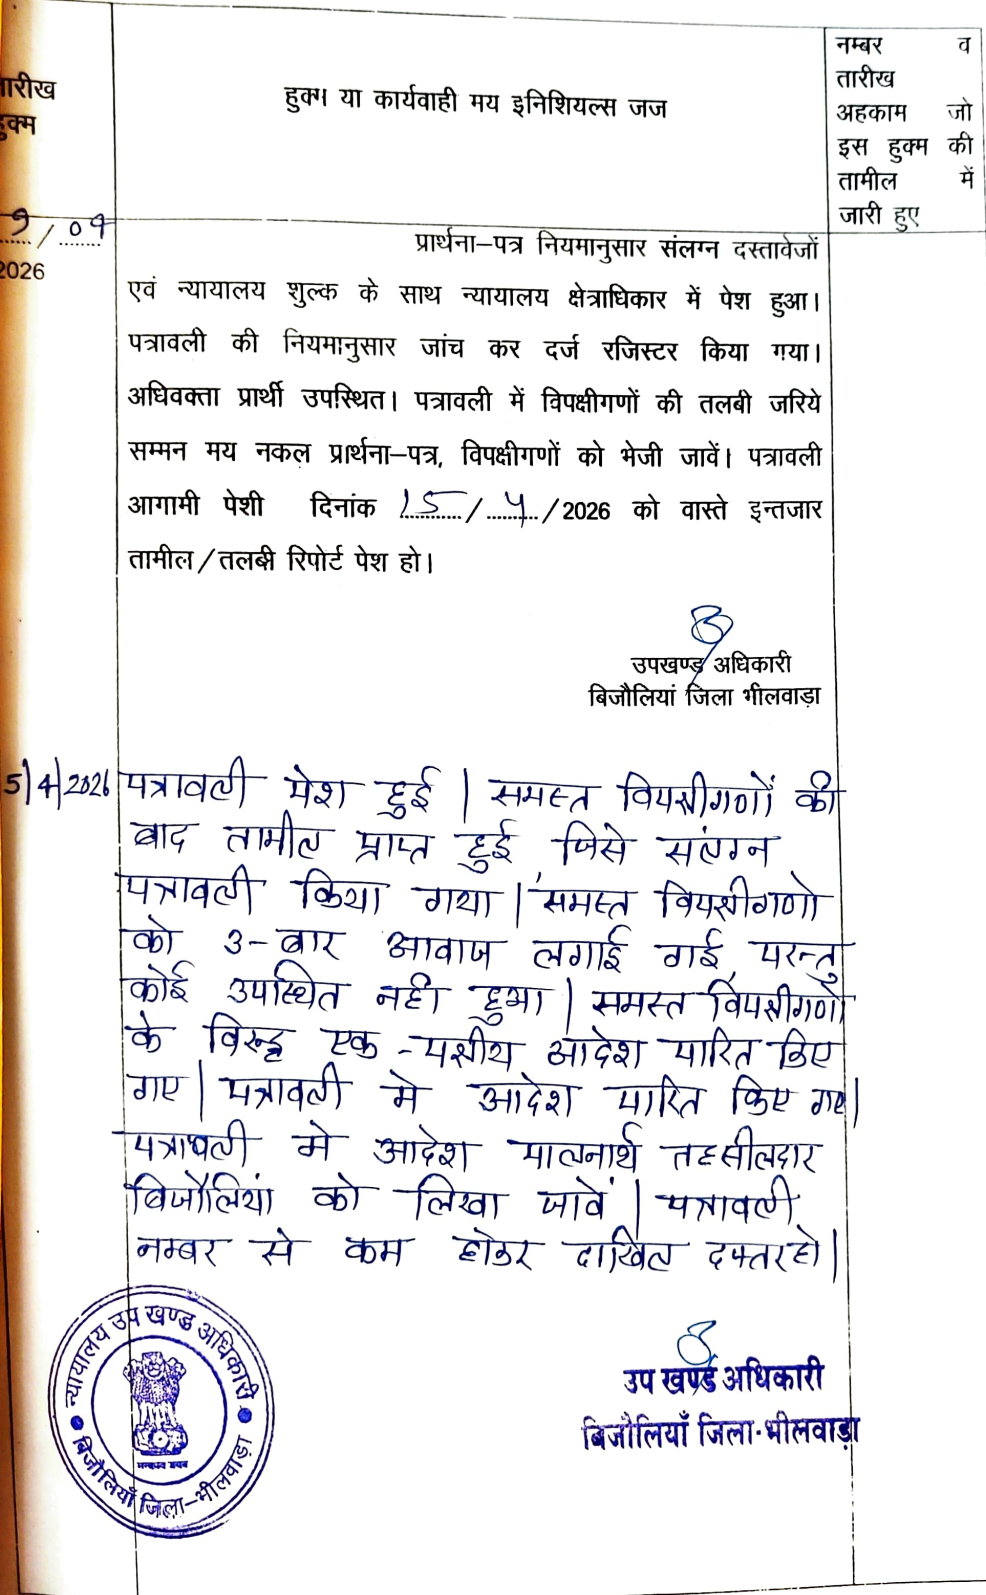 तारीख
हुक्म
हुक्म या कार्यवाही मय इनिशियल्स जज
नम्बर व
तारीख
अहकाम जो
इस हुक्म की
तामील में
जारी हुए
9/04
2026
प्रार्थना–पत्र नियमानुसार संलग्न दस्तावेजों
एवं न्यायालय शुल्क के साथ न्यायालय क्षेत्राधिकार में पेश हुआ।
पत्रावली की नियमानुसार जांच कर दर्ज रजिस्टर किया गया।
अधिवक्ता प्रार्थी उपस्थित। पत्रावली में विपक्षीगणों की तलबी जरिये
सम्मन मय नकल प्रार्थना–पत्र, विपक्षीगणों को भेजी जावें। पत्रावली
आगामी पेशी दिनांक 15/4/2026 को वास्ते इन्तजार
तामील/तलबी रिपोर्ट पेश हो।
उपखण्ड अधिकारी
बिजौलियां जिला भीलवाड़ा
5/4/2026 पत्रावली पेश हुई। समस्त विपक्षीगणों की
बाद तामील प्राप्त हुई, जिसे संलग्न
पत्रावली किया गया। समस्त विपक्षीगणो
को 3-बार आवाज लगाई गई, परन्तु
कोई उपस्थित नही हुआ। समस्त विपक्षीगणो
के विरूद्ध एक-पक्षीय आदेश पारित किए
गए। पत्रावली मे आदेश पारित किए गए।
पत्रावली मे आदेश पालनार्थ तहसीलदार
बिजौलियां को लिखा जावें। पत्रावली
नम्बर से कम होकर दाखिल दफ्तर हो।
उप खण्ड अधिकारी
बिजौलियाँ जिला-भीलवाड़ा
न्यायालय उप खण्ड अधिकारी
बिजौलियाँ जिला-भीलवाड़ा